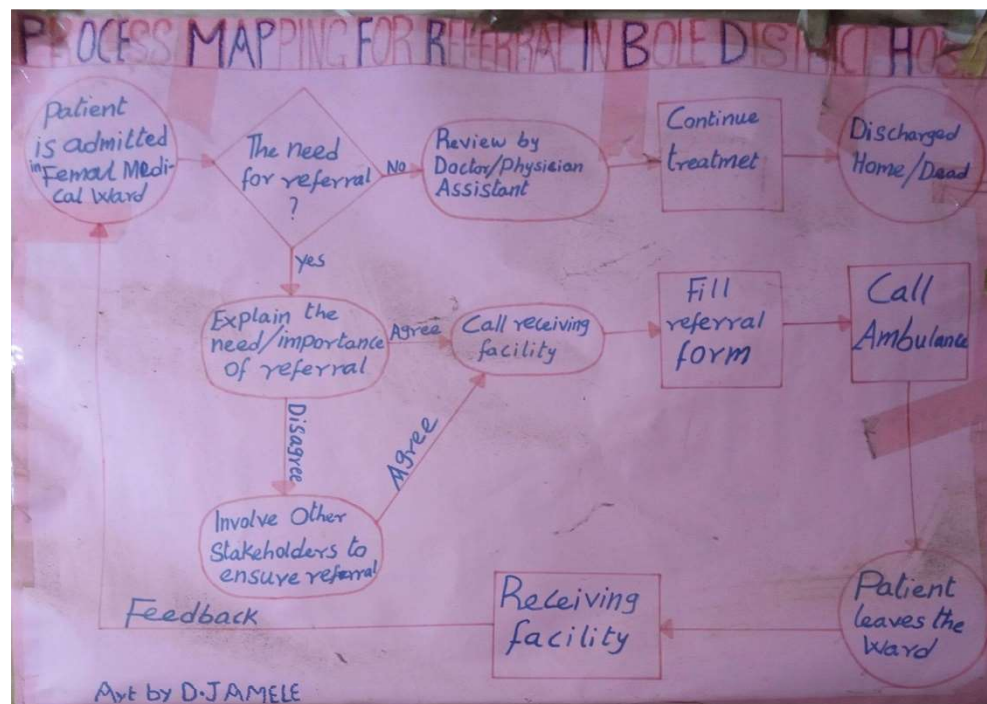 PROCESS MAPPING FOR REFERRAL IN BOLE DISTRICT HOS
Patient
is admitted
in Femal Medi-
cal Ward
The need
for referral
?
No
Review by
Doctor/Physician
Assistant
Continue
treatmet
Discharged
Home/Dead
yes
Explain the
need/importance
of referral
Agree
Call receiving
facility
Fill
referral
form
Call
Ambulance
Disagree
Agree
Involve Other
Stakeholders to
ensure referral
Patient
leaves the
Ward
Receiving
facility
Feedback
Art by D.JAMELE